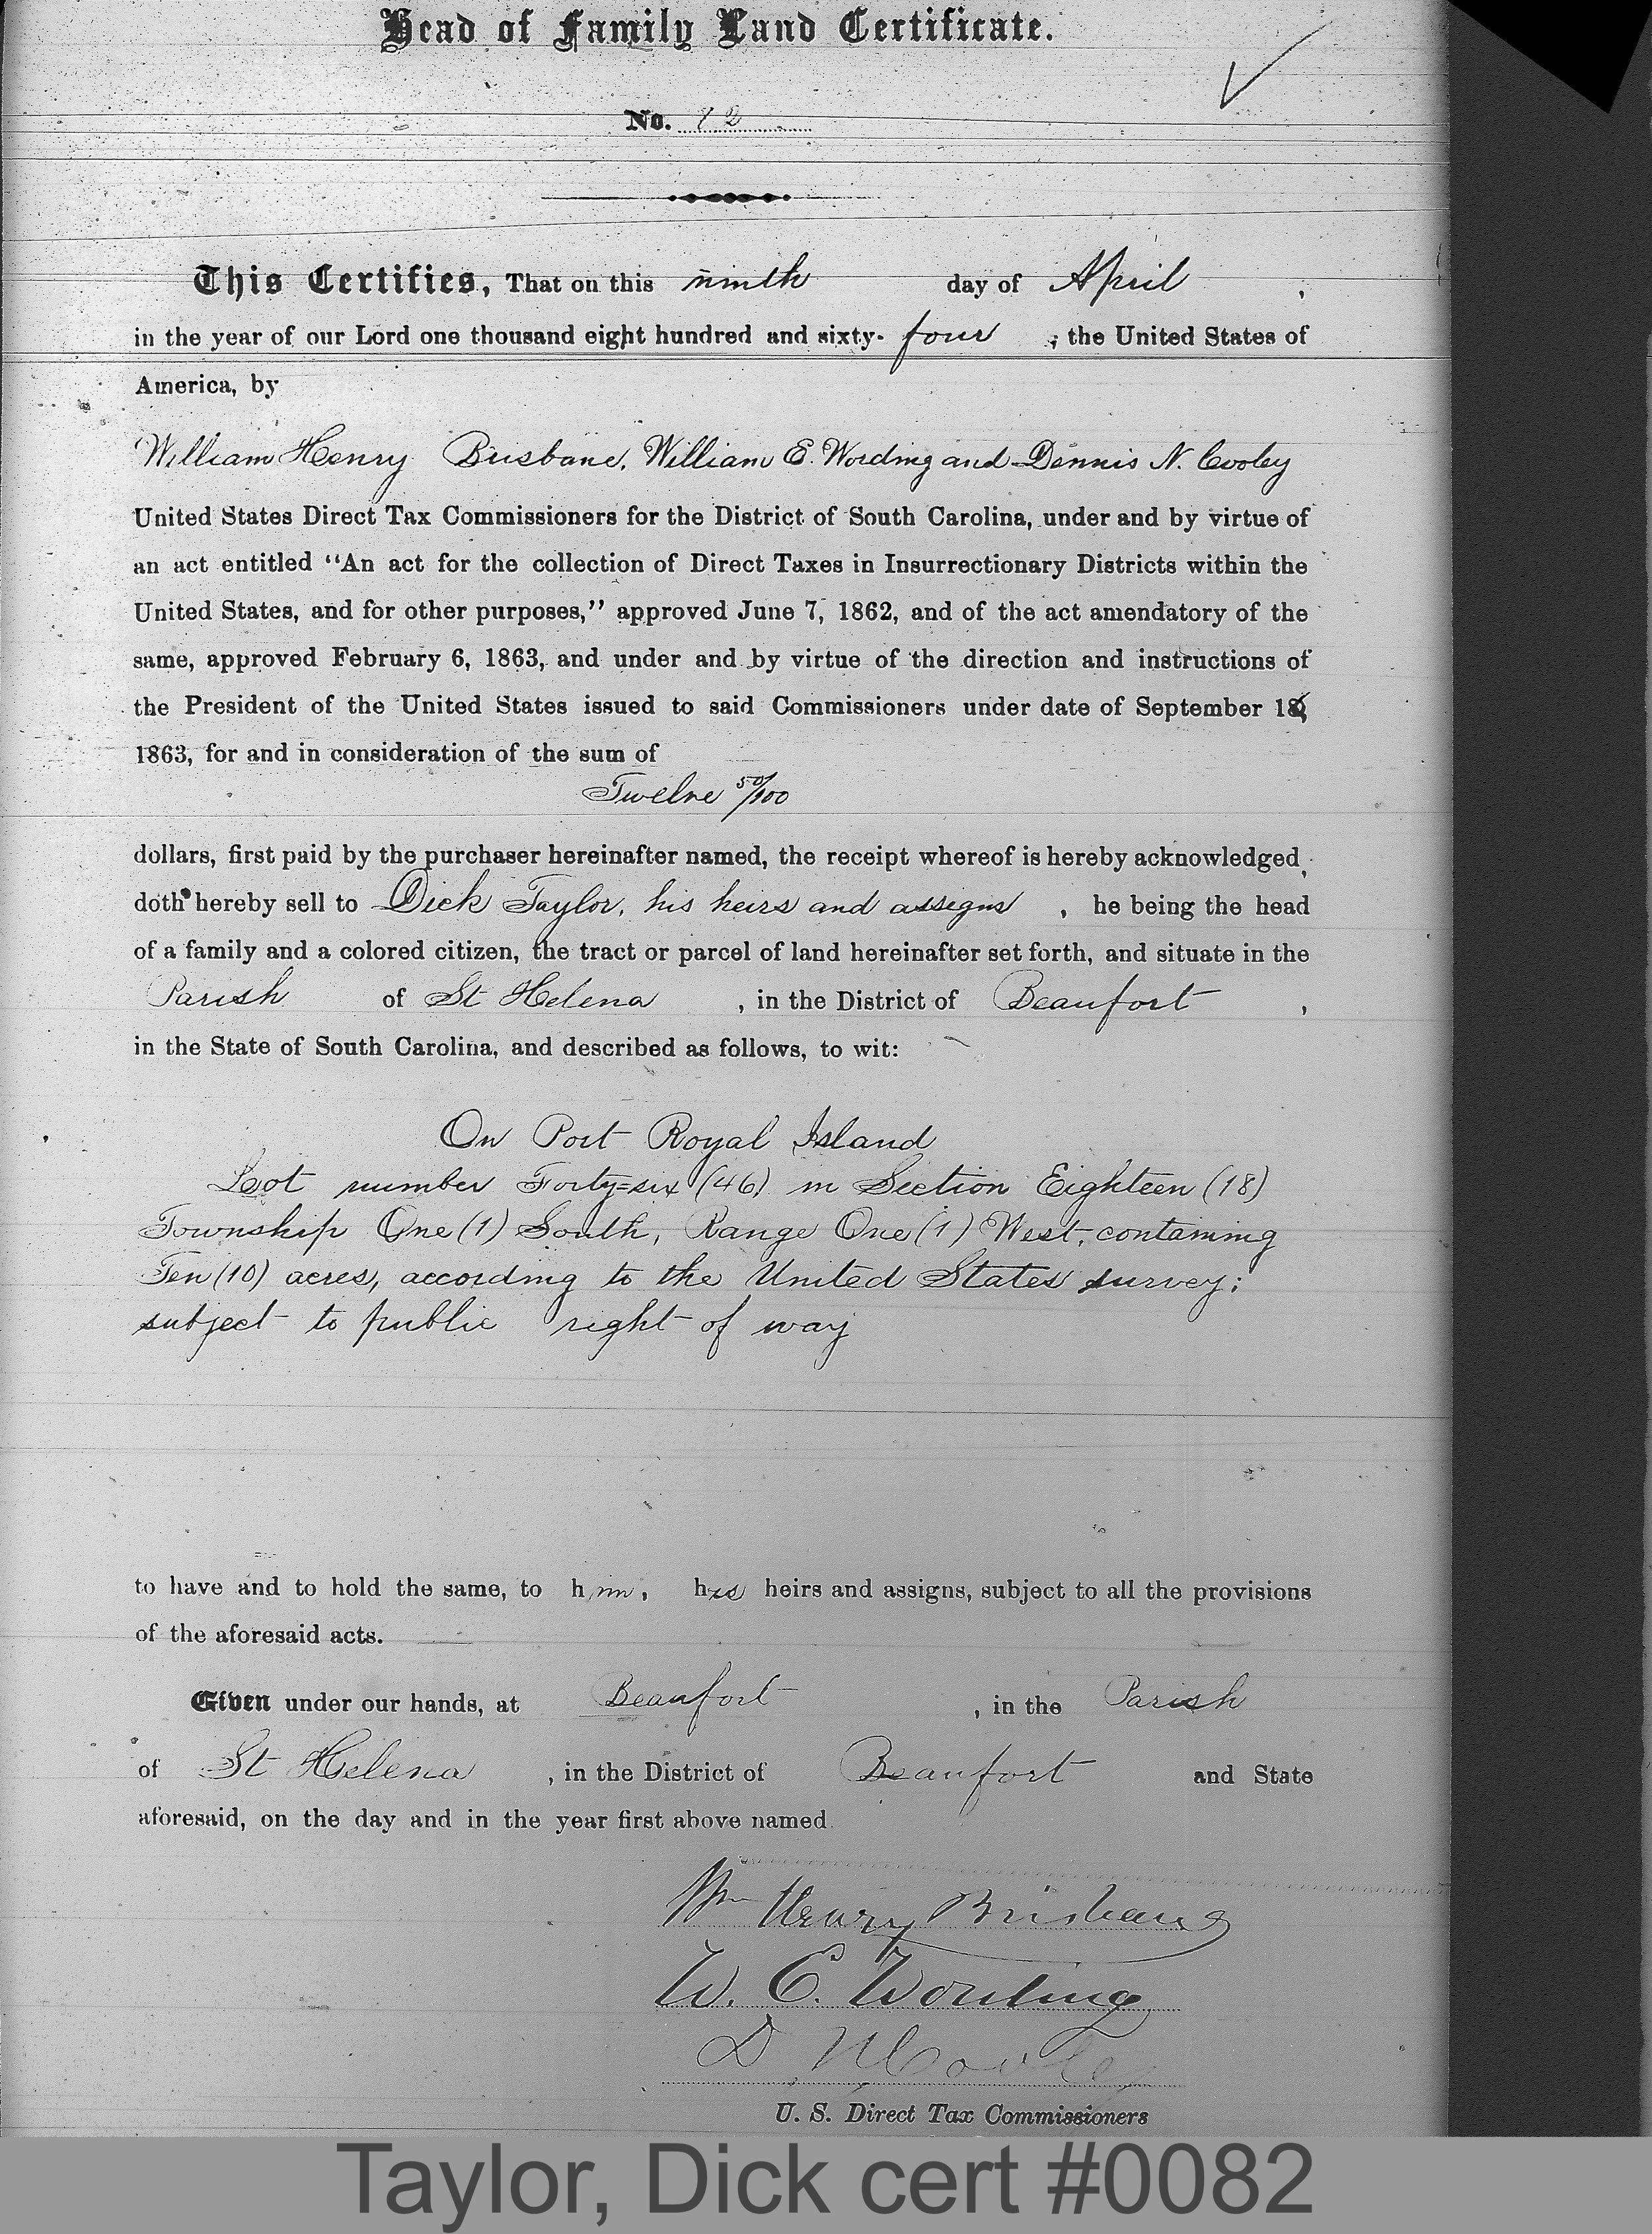 Head of Family Land Certificate.
No.
This Certifies, That on this ninth day of April ,
in the year of our Lord one thousand eight hundred and sixty- four , the United States of
America, by
William Henry Brisbane, William E. Wording and Dennis N. Cooley
United States Direct Tax Commissioners for the District of South Carolina, under and by virtue of
an act entitled "An act for the collection of Direct Taxes in Insurrectionary Districts within the
United States, and for other purposes," approved June 7, 1862, and of the act amendatory of the
same, approved February 6, 1863, and under and by virtue of the direction and instructions of
the President of the United States issued to said Commissioners under date of September
1863, for and in consideration of the sum of
Twelve 50/100
dollars, first paid by the purchaser hereinafter named, the receipt whereof is hereby acknowledged,
doth hereby sell to Dick Taylor, his heirs and assigns , he being the head
of a family and a colored citizen, the tract or parcel of land hereinafter set forth, and situate in the
Parish of St Helena , in the District of Beaufort ,
in the State of South Carolina, and described as follows, to wit:
On Port Royal Island
Lot number Forty=six (46) in Section Eighteen (18)
Township One (1) South, Range One (1) West, containing
Ten (10) acres, according to the United States survey;
subject to public right of way
to have and to hold the same, to him, his heirs and assigns, subject to all the provisions
of the aforesaid acts.
Given under our hands, at Beaufort , in the Parish
of St Helena , in the District of Beaufort and State
aforesaid, on the day and in the year first above named.
Wm Henry Brisbane
W. E. Wording
D. N. Cooley
U. S. Direct Tax Commissioners
Taylor, Dick cert #0082